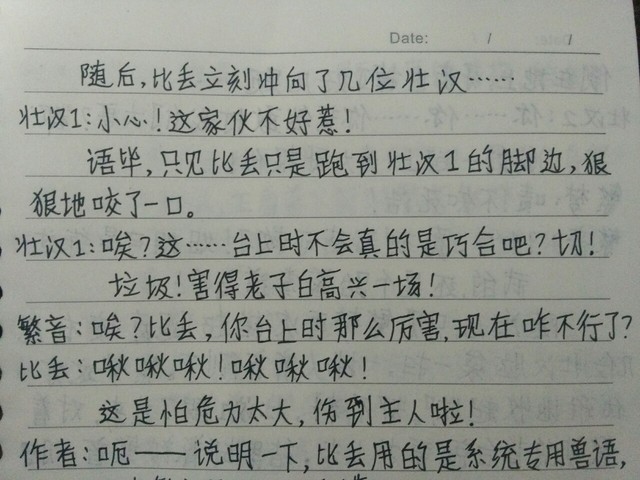 Date: / /
随后,比丢立刻冲向了几位壮汉……
壮汉1:小心!这家伙不好惹!
语毕,只见比丢只是跑到壮汉1的脚边,狠
狠地咬了一口。
壮汉1:唉?这……台上时不会真的是巧合吧?切!
垃圾!害得老子白高兴一场!
繁音:唉?比丢,你台上时那么厉害,现在咋不行了?
比丢:啾啾啾!啾啾啾!
这是怕危力太大,伤到主人啦!
作者:呃——说明一下,比丢用的是系统专用兽语,